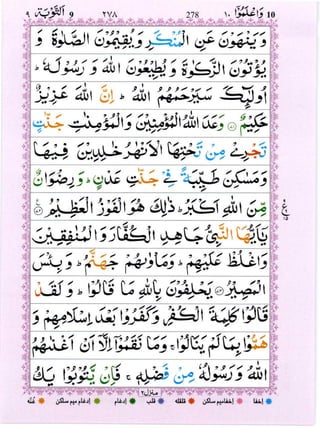 التَّوْبَة ٩ 9 ٢٧٨ 278 وَاعْلَمُوْٓا 10
وَ يَنْهَوْنَ عَنِ الْمُنْكَرِ وَ يُقِيْمُوْنَ الصَّلٰوةَ وَ
يُؤْتُوْنَ الزَّكٰوةَ وَ يُطِيْعُوْنَ اللّٰهَ وَ رَسُوْلَهٗ ؕ
اُولٰٓئِكَ سَيَرْحَمُهُمُ اللّٰهُ ؕ اِنَّ اللّٰهَ عَزِيْزٌ
حَكِيْمٌ ﴿٧١﴾ وَعَدَ اللّٰهُ الْمُؤْمِنِيْنَ وَ الْمُؤْمِنٰتِ جَنّٰتٍ
تَجْرِيْ مِنْ تَحْتِهَا الْاَنْهٰرُ خٰلِدِيْنَ فِيْهَا
وَ مَسٰكِنَ طَيِّبَةً فِيْ جَنّٰتِ عَدْنٍ ؕ وَ رِضْوَانٌ
مِّنَ اللّٰهِ اَكْبَرُ ؕ ذٰلِكَ هُوَ الْفَوْزُ الْعَظِيْمُ ﴿٧٢﴾
يٰۤاَيُّهَا النَّبِيُّ جَاهِدِ الْكُفَّارَ وَ الْمُنٰفِقِيْنَ
وَ اغْلُظْ عَلَيْهِمْ ؕ وَ مَاْوٰىهُمْ جَهَنَّمُ ؕ وَ بِئْسَ
الْمَصِيْرُ ﴿٧٣﴾ يَحْلِفُوْنَ بِاللّٰهِ مَا قَالُوْا ؕ وَ لَقَدْ
قَالُوْا كَلِمَةَ الْكُفْرِ وَ كَفَرُوْا بَعْدَ اِسْلَامِهِمْ وَ
هَمُّوْا بِمَا لَمْ يَنَالُوْا ۚ وَ مَا نَقَمُوْۤا اِلَّاۤ اَنْ اَغْنٰىهُمُ
اللّٰهُ وَ رَسُوْلُهٗ مِنْ فَضْلِهٖ ۚ فَاِنْ يَّتُوْبُوْا يَكُ
منزل ٢
اخفا اخفا میم ساکن قلقلہ قلب ادغام ادغام میم ساکن غنّہ